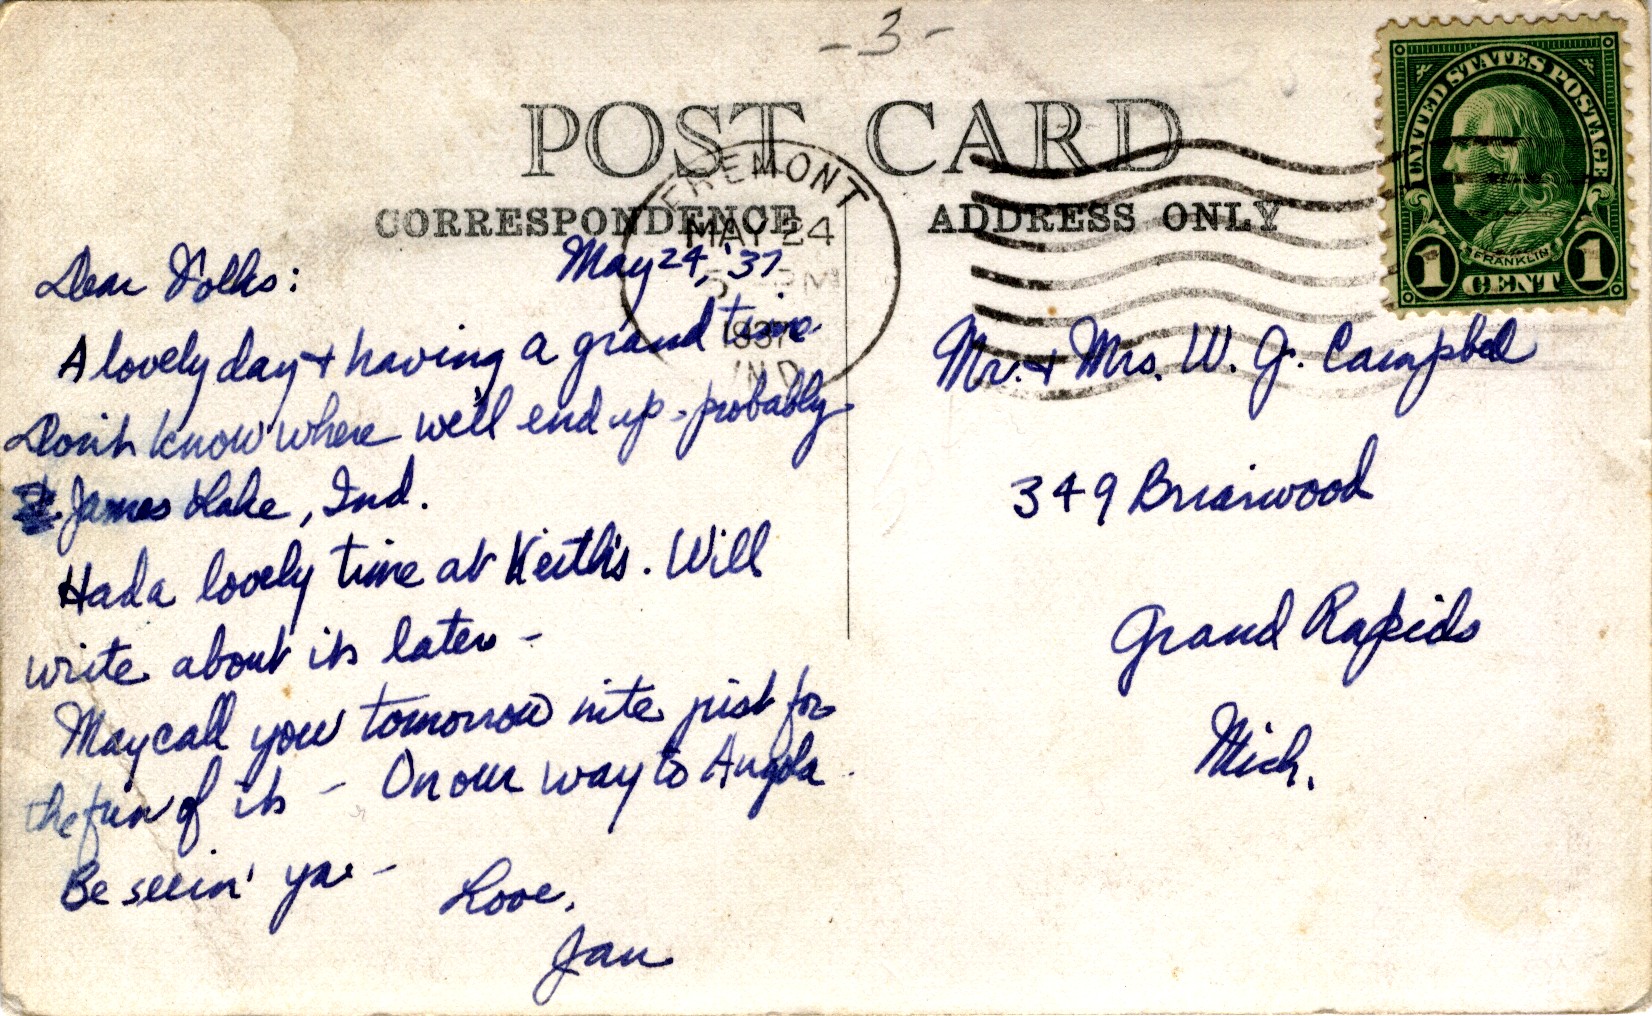 -3-
POST CARD
FREMONT
MAY 24
5 - PM
1937
IND.
CORRESPONDENCE
ADDRESS ONLY
UNITED STATES POSTAGE
FRANKLIN
1 CENT 1
May 24, '37
Dear Folks:
A lovely day + having a grand time
Don't know where we'll end up - probably
James Lake, Ind.
Had a lovely time at Keith's. Will
write about it later -
May call you tomorrow nite just for
the fun of it - On our way to Angola
Be seein' ya -
Love,
Jan
Mr. + Mrs. W. J. Campbell
349 Briarwood
Grand Rapids
Mich.